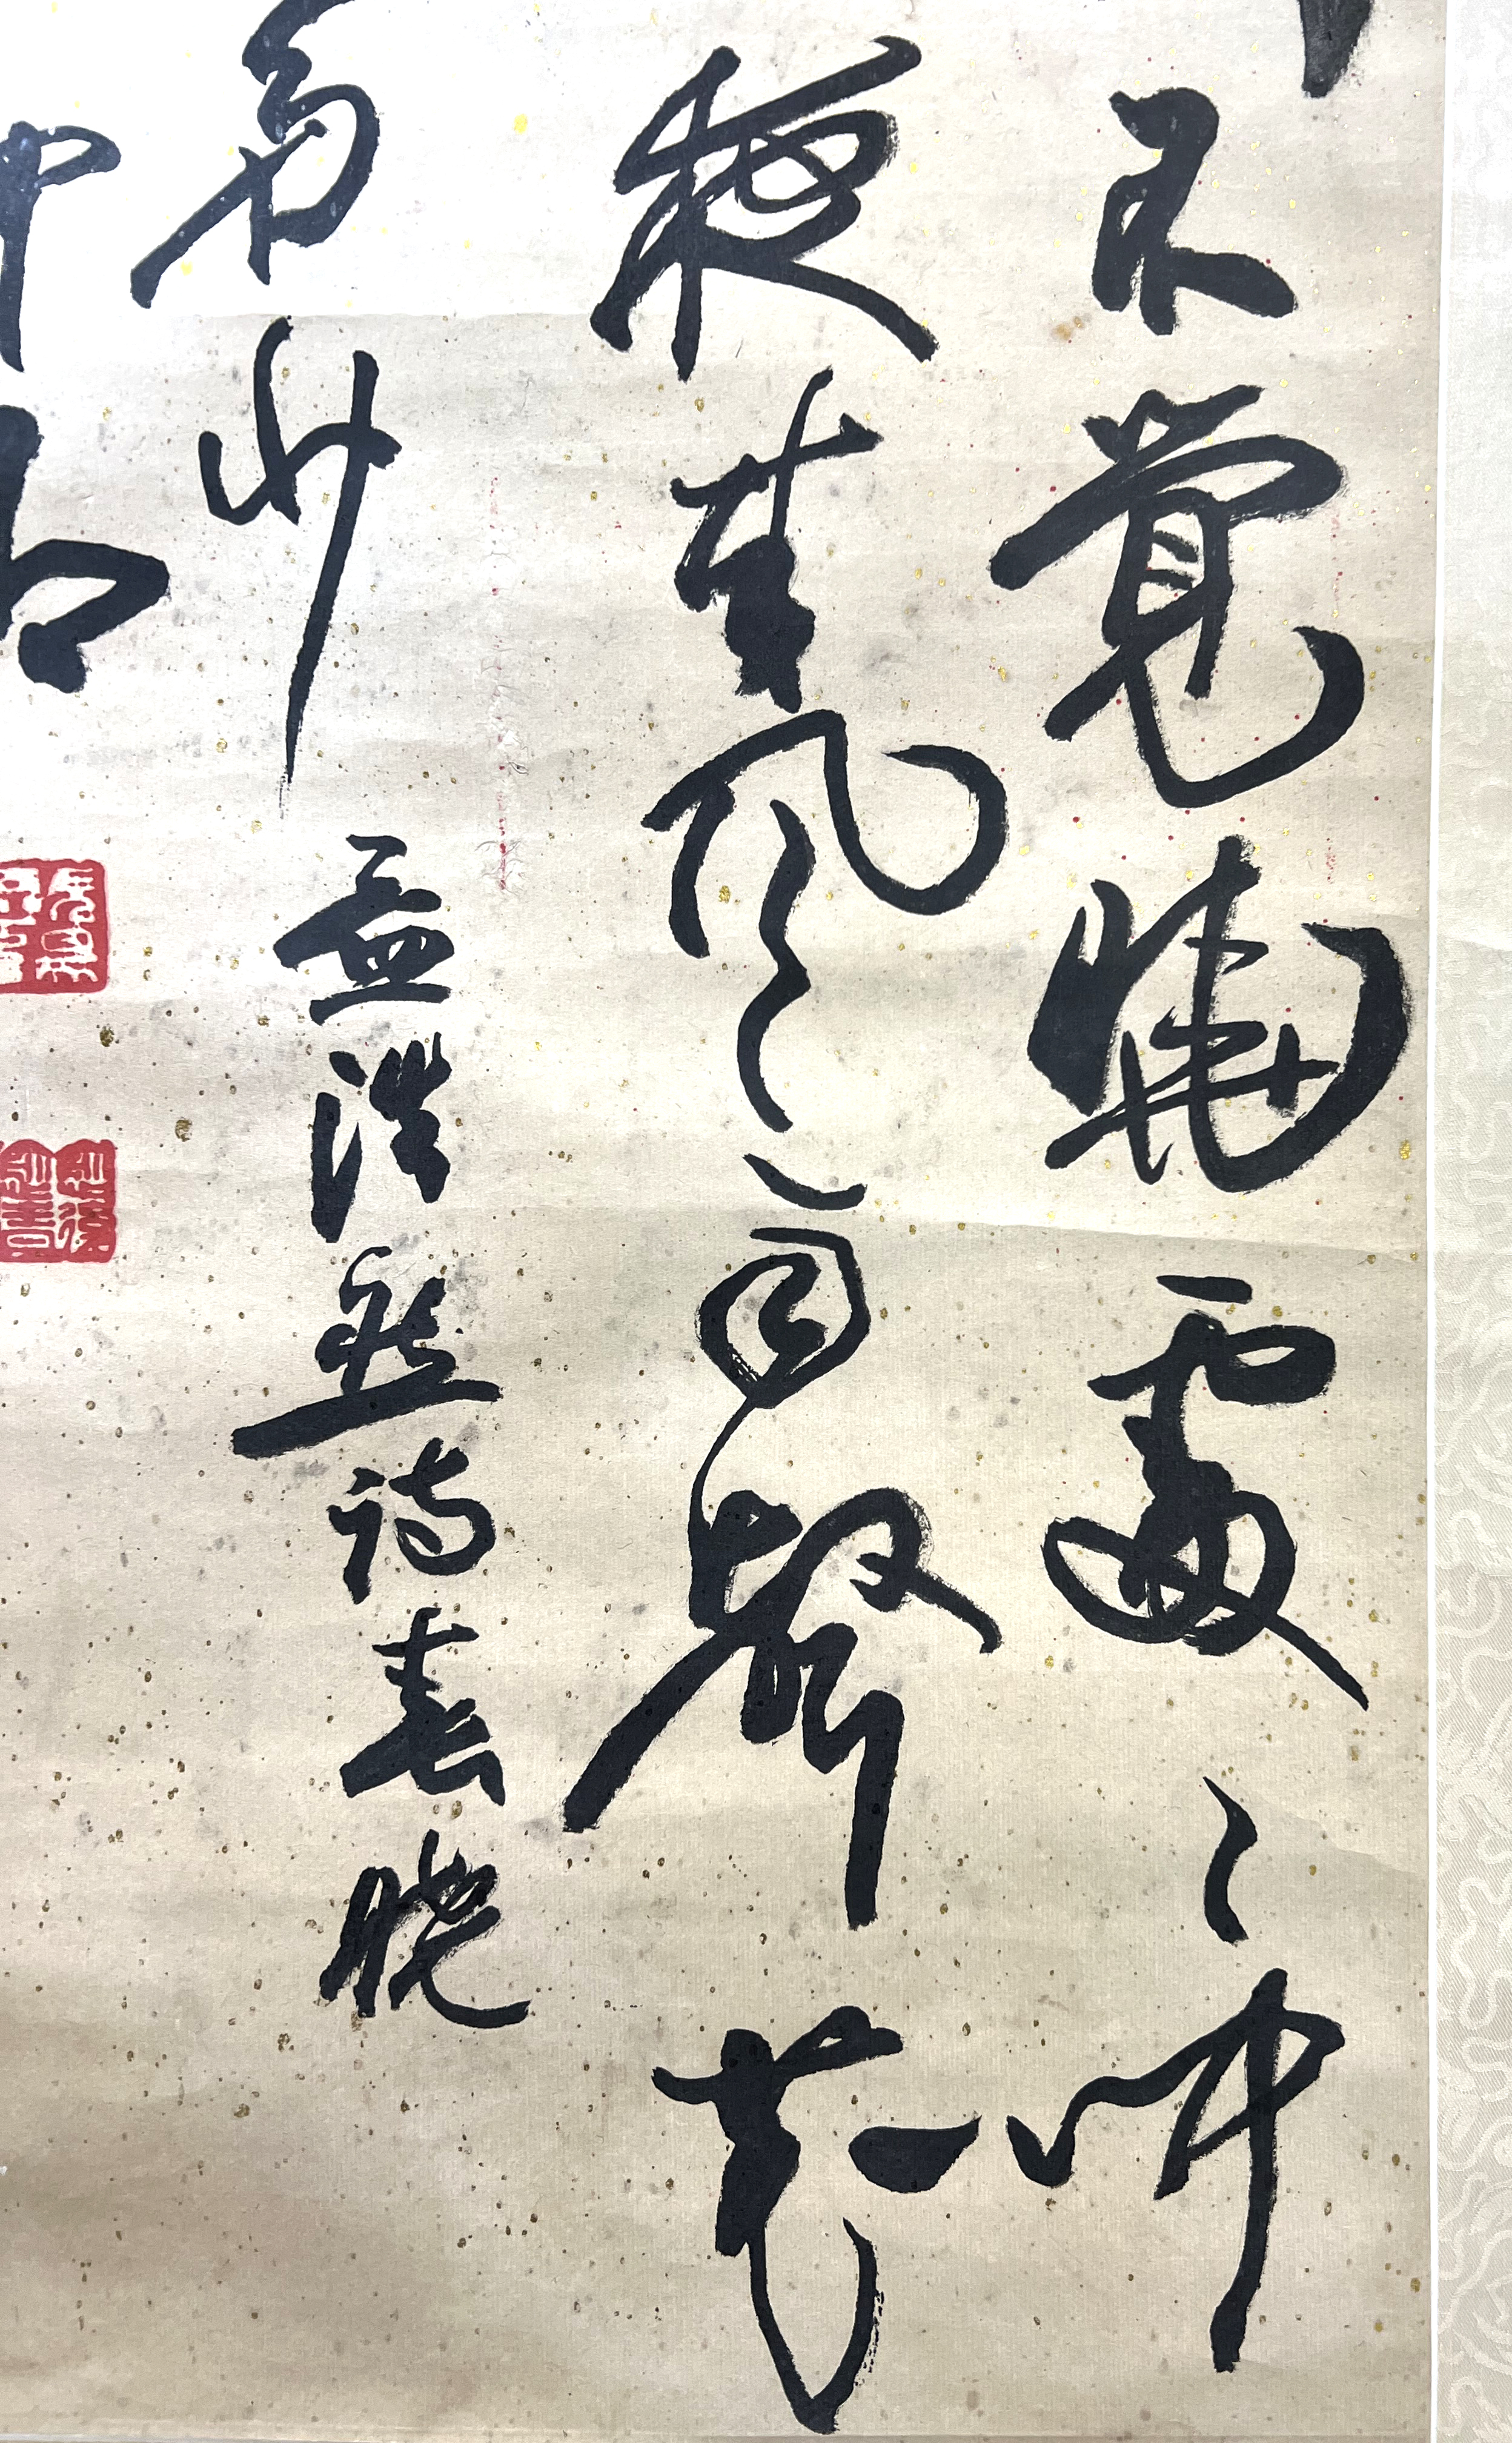 不覺曉處〻聞
夜來風雨聲花
多少 孟浩然詩春曉